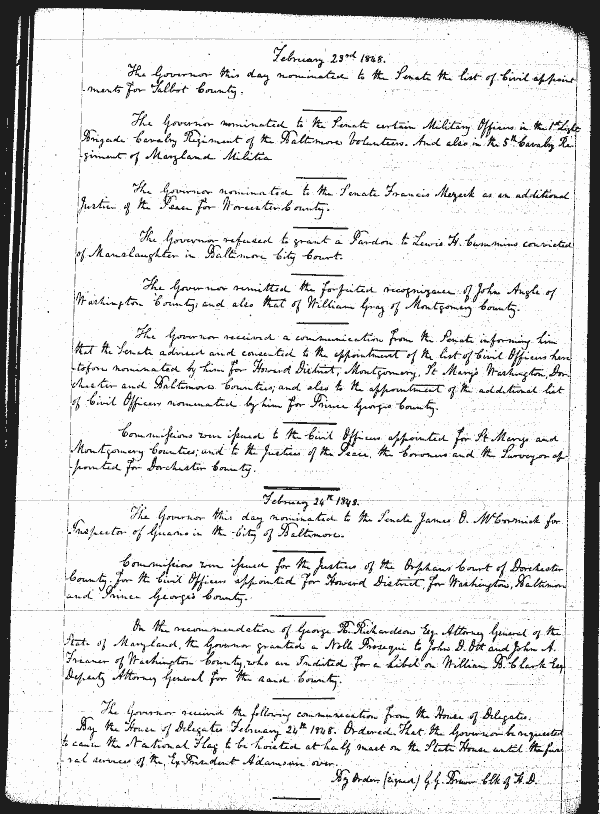 February 23rd 1848.
The Governor this day nominated to the Senate the list of Civil appoint
-ments for Talbot County.
The Governor nominated to the Senate certain Military Officers in the 1st Light
Brigade Cavalry Regiment of the Baltimore Volunteers. And also in the 5th Cavalry Re
giment of Maryland Militia
The Governor nominated to the Senate Francis Mezick as an additional
Justice of the Peace for Worcester County.
The Governor refused to grant a Pardon to Lewis H. Cummins convicted
of Manslaughter in Baltimore City Court.
The Governor remitted the forfeited recognizance of John Angle of
Washington County; and also that of William Gray of Montgomery County.
The Governor received a communication from the Senate informing him
that the Senate advised and consented to the appointment of the list of Civil Officers here
-tofore nominated by him for Howard District, Montgomery, St Mary's Washington, Dor
chester and Baltimore Counties; and also to the appointment of the additional list
of Civil Officers nominated by him for Prince George's County.
Commissions were issued to the Civil Officers appointed for St Marys and
Montgomery Counties; and to the Justices of the Peace, the Coroners and the Surveyor ap
-pointed for Dorchester County.
February 24th 1848.
The Governor this day nominated to the Senate James O. McCormick for
Inspector of Guano in the City of Baltimore.
Commissions were issued for the Justices of the Orphans Court of Dorchester
County, for the Civil Officers appointed for Howard District, for Washington, Baltimore
and Prince George's County.
On the recommendation of George R. Richardson Esq. Attorney General of the
State of Maryland, the Governor granted a Nolle Prosequi to John D. Ott and John A.
Freaner of Washington County, who are Indited for a Libel on William B. Clark Esq
Deputy Attorney General for the said County.
The Governor received the following communication from the House of Delegates.
By the House of Delegates February 24th 1848. Ordered That the Governor be requested
to cause the National Flag to be hoisted at half mast on the State House until the fune
ral services of the, Ex President Adams are over.
By Order (signed) G. G. Brewer Clk of H. D.